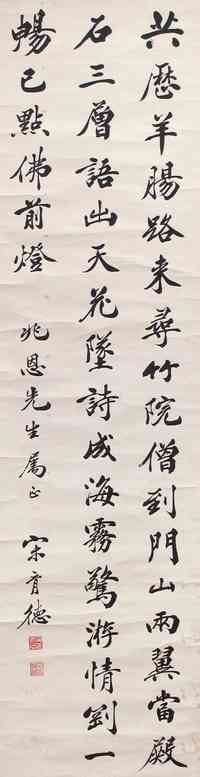 共歷羊腸路來尋竹院僧到門山兩翼當殿
石三層語出天花墜詩成海霧驚游情劉一
暢已點佛前燈
兆恩先生屬正
宋育德